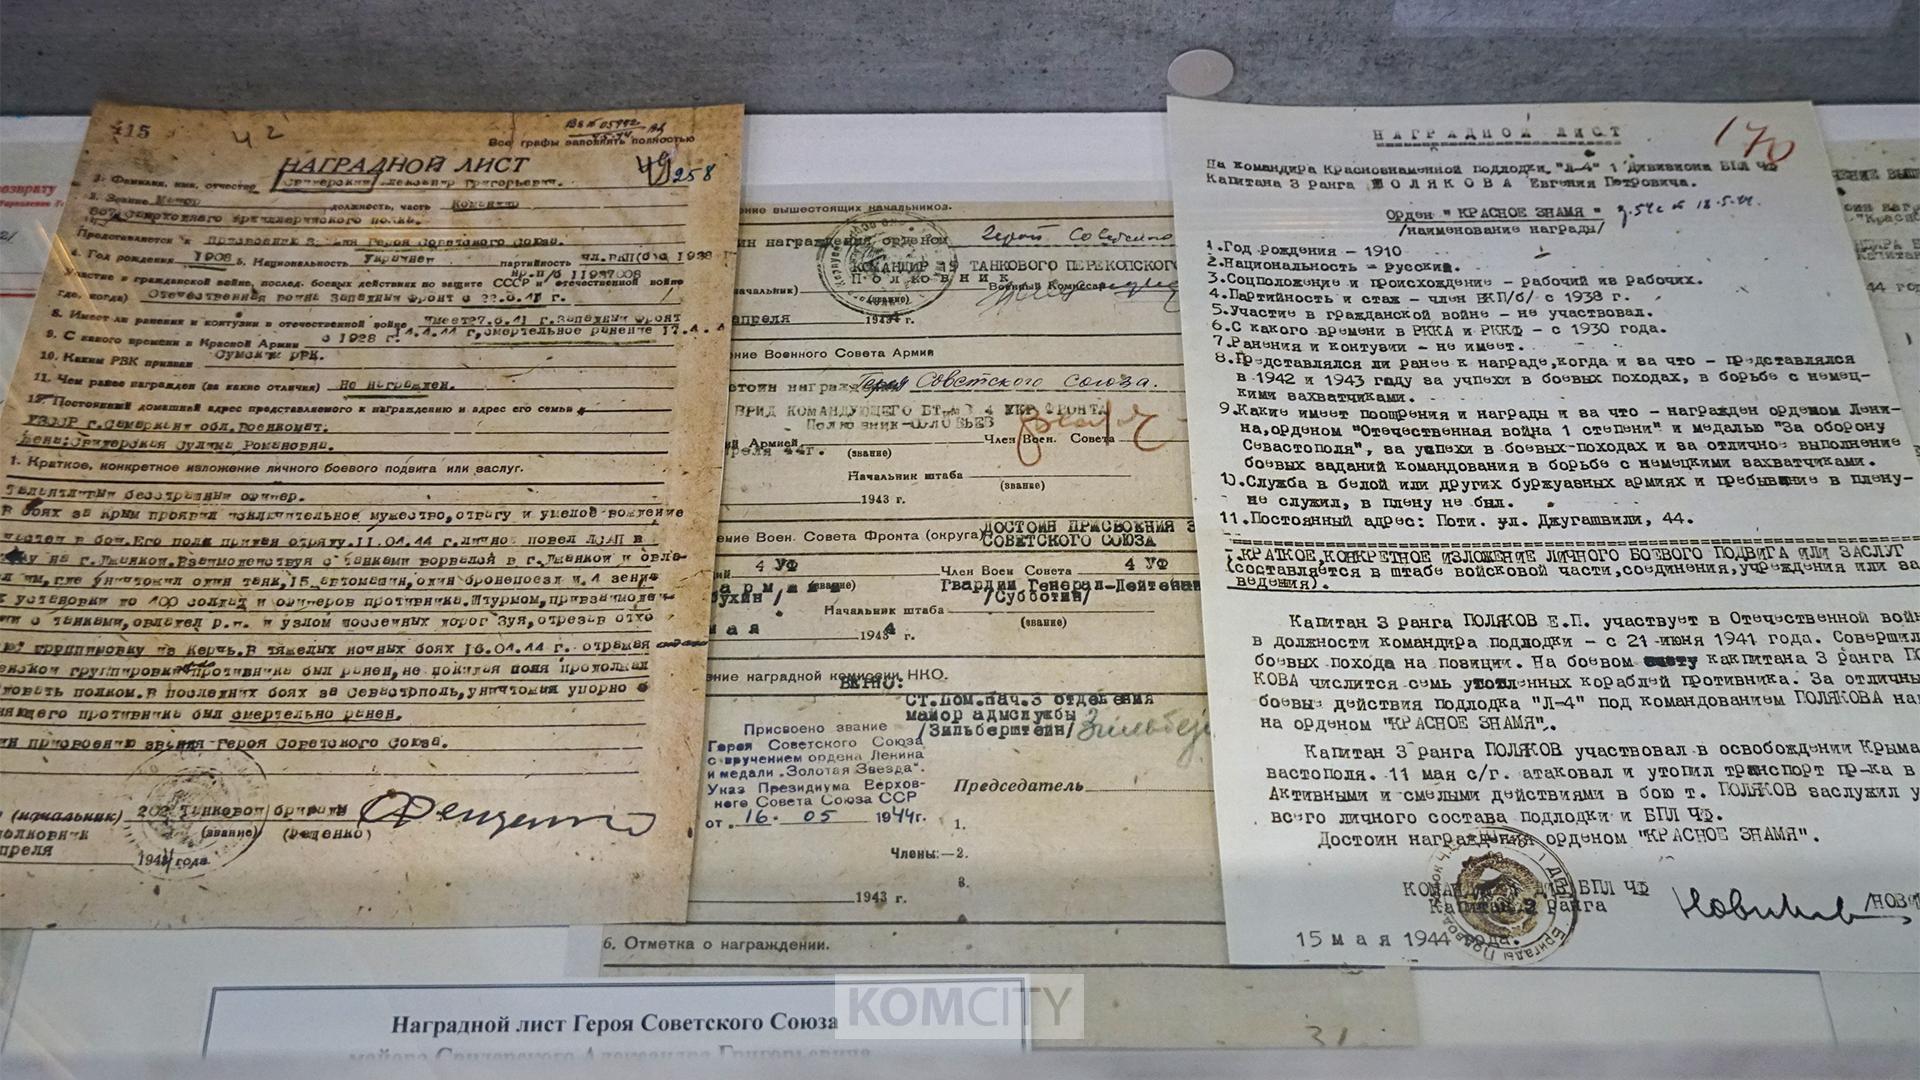 возврату
415
42
Все графы заполнить полностью
НАГРАДНОЙ ЛИСТ
258
1. Фамилия, имя, отчество Свидерский Александр Григорьевич.
2. Звание Майор должность, часть Командир
артиллерийского полка.
Представляется к присвоению звания Героя Советского Союза.
4. Год рождения 1908 5. Национальность Украинец партийность чл.ВКП(б) с 1938
пр.п/б 11937008
Участие в гражданской войне, послед. боевых действиях по защите СССР и отечественной войне
где, когда) Отечественная война Западный фронт с 22.6.41 г.
8. Имеет ли ранения и контузии в отечественной войне имеет 27.6.41 г. Западный фронт
14.4.44 г, смертельное ранение 17.4.4
9. С какого времени в Красной Армии с 1928 г.
10. Каким РВК призван Сумским РВК.
11. Чем ранее награжден (за какие отличия) Не награжден.
12. Постоянный домашний адрес представляемого к награждению и адрес его семьи
УЗССР г. Самарканд обл. Военкомат.
Жена: Свидерская Сулима Романовна.
1. Краткое, конкретное изложение личного боевого подвига или заслуг.
Талантливый бесстрашный офицер.
В боях за Крым проявил исключительное мужество, отвагу и умелое вождение
частей в бою. Его полк придан отряду. 11.04.44 г. лично повел ЛСАП в
ку на г. Джанкой. Взаимодействуя с танками ворвался в г. Джанкой и овла-
л им, где уничтожил один танк, 15 автомашин, один бронепоезд и 4 зенит
х установки до 400 солдат и офицеров противника. Штурмом, при взаимодей-
ии с танками, овладел р.ц. и узлом шоссейных дорог Зуя, отрезав отхо
группировку на Керчь. В тяжелых ночных боях 16.04.44 г. отражая
енской группировки противника был ранен, не покидая поля продолжал
довать полком. В последних боях за Севастополь, уничтожая упорно о
няющего противника был смертельно ранен.
ин присвоению звания Героя Советского Союза.
(начальник) 202 Танковой бригады
полковник (звание) (Фещенко)
преля
1944 года
ение вышестоящих начальников.
ин награждения орденом Герой Советского
КОМАНДИР 19 ТАНКОВОГО ПЕРЕКОПСКОГ
Полковник
начальник) (звание) Военный Комиссар
апреля 1944 г.
ение Военного Совета Армии
стоин награждения Героя Советского Союза.
ВРИД КОМАНДУЮЩЕГО БТ и МВ 4 УКР ФРОНТА
Полковник-СОЛОВЬЕВ
ий Армией Член Воен. Совета
реля 44г. (звание)
Начальник штаба
(звание)
1943 г.
ДОСТОИН ПРИСВОЕНИЯ З
ение Воен. Совета Фронта (округа) СОВЕТСКОГО СОЮЗА
ий 4 УФ Член Воен Совета 4 УФ
армии (звание) Гвардии Генерал-Лейтенан
бухин/ /Субботин/
Начальник штаба
(звание)
мая 1944 г.
ение наградной комиссии НКО.
ВЕРНО:
СТ.ПОМ.НАЧ.3 отделения
майор адмслужбы
/Зильберштейн/
Присвоено звание
Героя Советского Союза
с вручением ордена Ленина
и медали „Золотая Звезда“.
Указ Президиума Верхов-
ного Совета Союза ССР
от „16“ 05 1944г.
Председатель
1.
Члены:—2.
3.
1943 г.
6. Отметка о награждении.
31
НАГРАДНОЙ ЛИСТ
170
На командира Краснознаменной подлодки "Л-4" 1 Дививиона БПЛ ЧФ
Капитана 3 ранга ПОЛЯКОВА Евгения Петровича.
Орден "КРАСНОЕ ЗНАМЯ"
/наименование награды/
1.Год рождения - 1910
2.Национальность - русский.
3.Соцположение и происхождение - рабочий из рабочих.
4.Партийность и стаж - член ВКП/б/ с 1938 г.
5.Участие в гражданской войне - не участвовал.
6.С какого времени в РККА и РККФ - с 1930 года.
7.Ранения и контузии - не имеет.
8.Представлялся ли ранее к награде,когда и за что - представлялся
в 1942 и 1943 году за успехи в боевых походах, в борьбе с немец-
кими захватчиками.
9.Какие имеет поощрения и награды и за что - награжден орденом Лени-
на,орденом "Отечественная война 1 степени" и медалью "За оборону
Севастополя", за успехи в боевых-походах и за отличное выполнение
боевых заданий командования в борьбе с немецкими захватчиками.
10.Служба в белой или других буржуазных армиях и пребывание в плену-
не служил, в плену не был.
11.Постоянный адрес: Поти. ул. Джугашвили, 44.
КРАТКОЕ,КОНКРЕТНОЕ ИЗЛОЖЕНИЕ ЛИЧНОГО БОЕВОГО ПОДВИГА ИЛИ ЗАСЛУГ
(составляется в штабе войсковой части,соединения,учреждения или за
ведения).
Капитан 3 ранга ПОЛЯКОВ Е.П. участвует в Отечественной войн
в должности командира подлодки - с 21 июня 1941 года. Совершил
боевых похода на позиции. На боевом счету какпитана 3 ранга ПО
КОВА числится семь утопленных кораблей противника. За отличны
боевые действия подлодка "Л-4" под командованием ПОЛЯКОВА наг
на орденом "КРАСНОЕ ЗНАМЯ".
Капитан 3 ранга ПОЛЯКОВ участвовал в освобождении Крыма
вастополя. 11 мая с/г. атаковал и утопил транспорт пр-ка в
Активными и смелыми действиями в бою т. ПОЛЯКОВ заслужил у
всего личного состава подлодки и БПЛ ЧФ.
Достоин награждения орденом "КРАСНОЕ ЗНАМЯ".
КОМАНДИР 1 ДИВ БПЛ ЧФ
Капитан 2 ранга
/НОВИ
15 мая 1944 года.
Наградной лист Героя Советского Союза
майора Свидерского Александра Григорьевича
KOMCITY